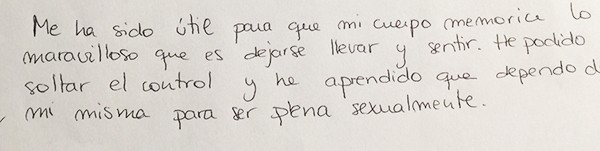 Me ha sido útil para que mi cuerpo memorice lo
maravilloso que es dejarse llevar y sentir. He podido
soltar el control y he aprendido que dependo d
mi misma para ser plena sexualmente.